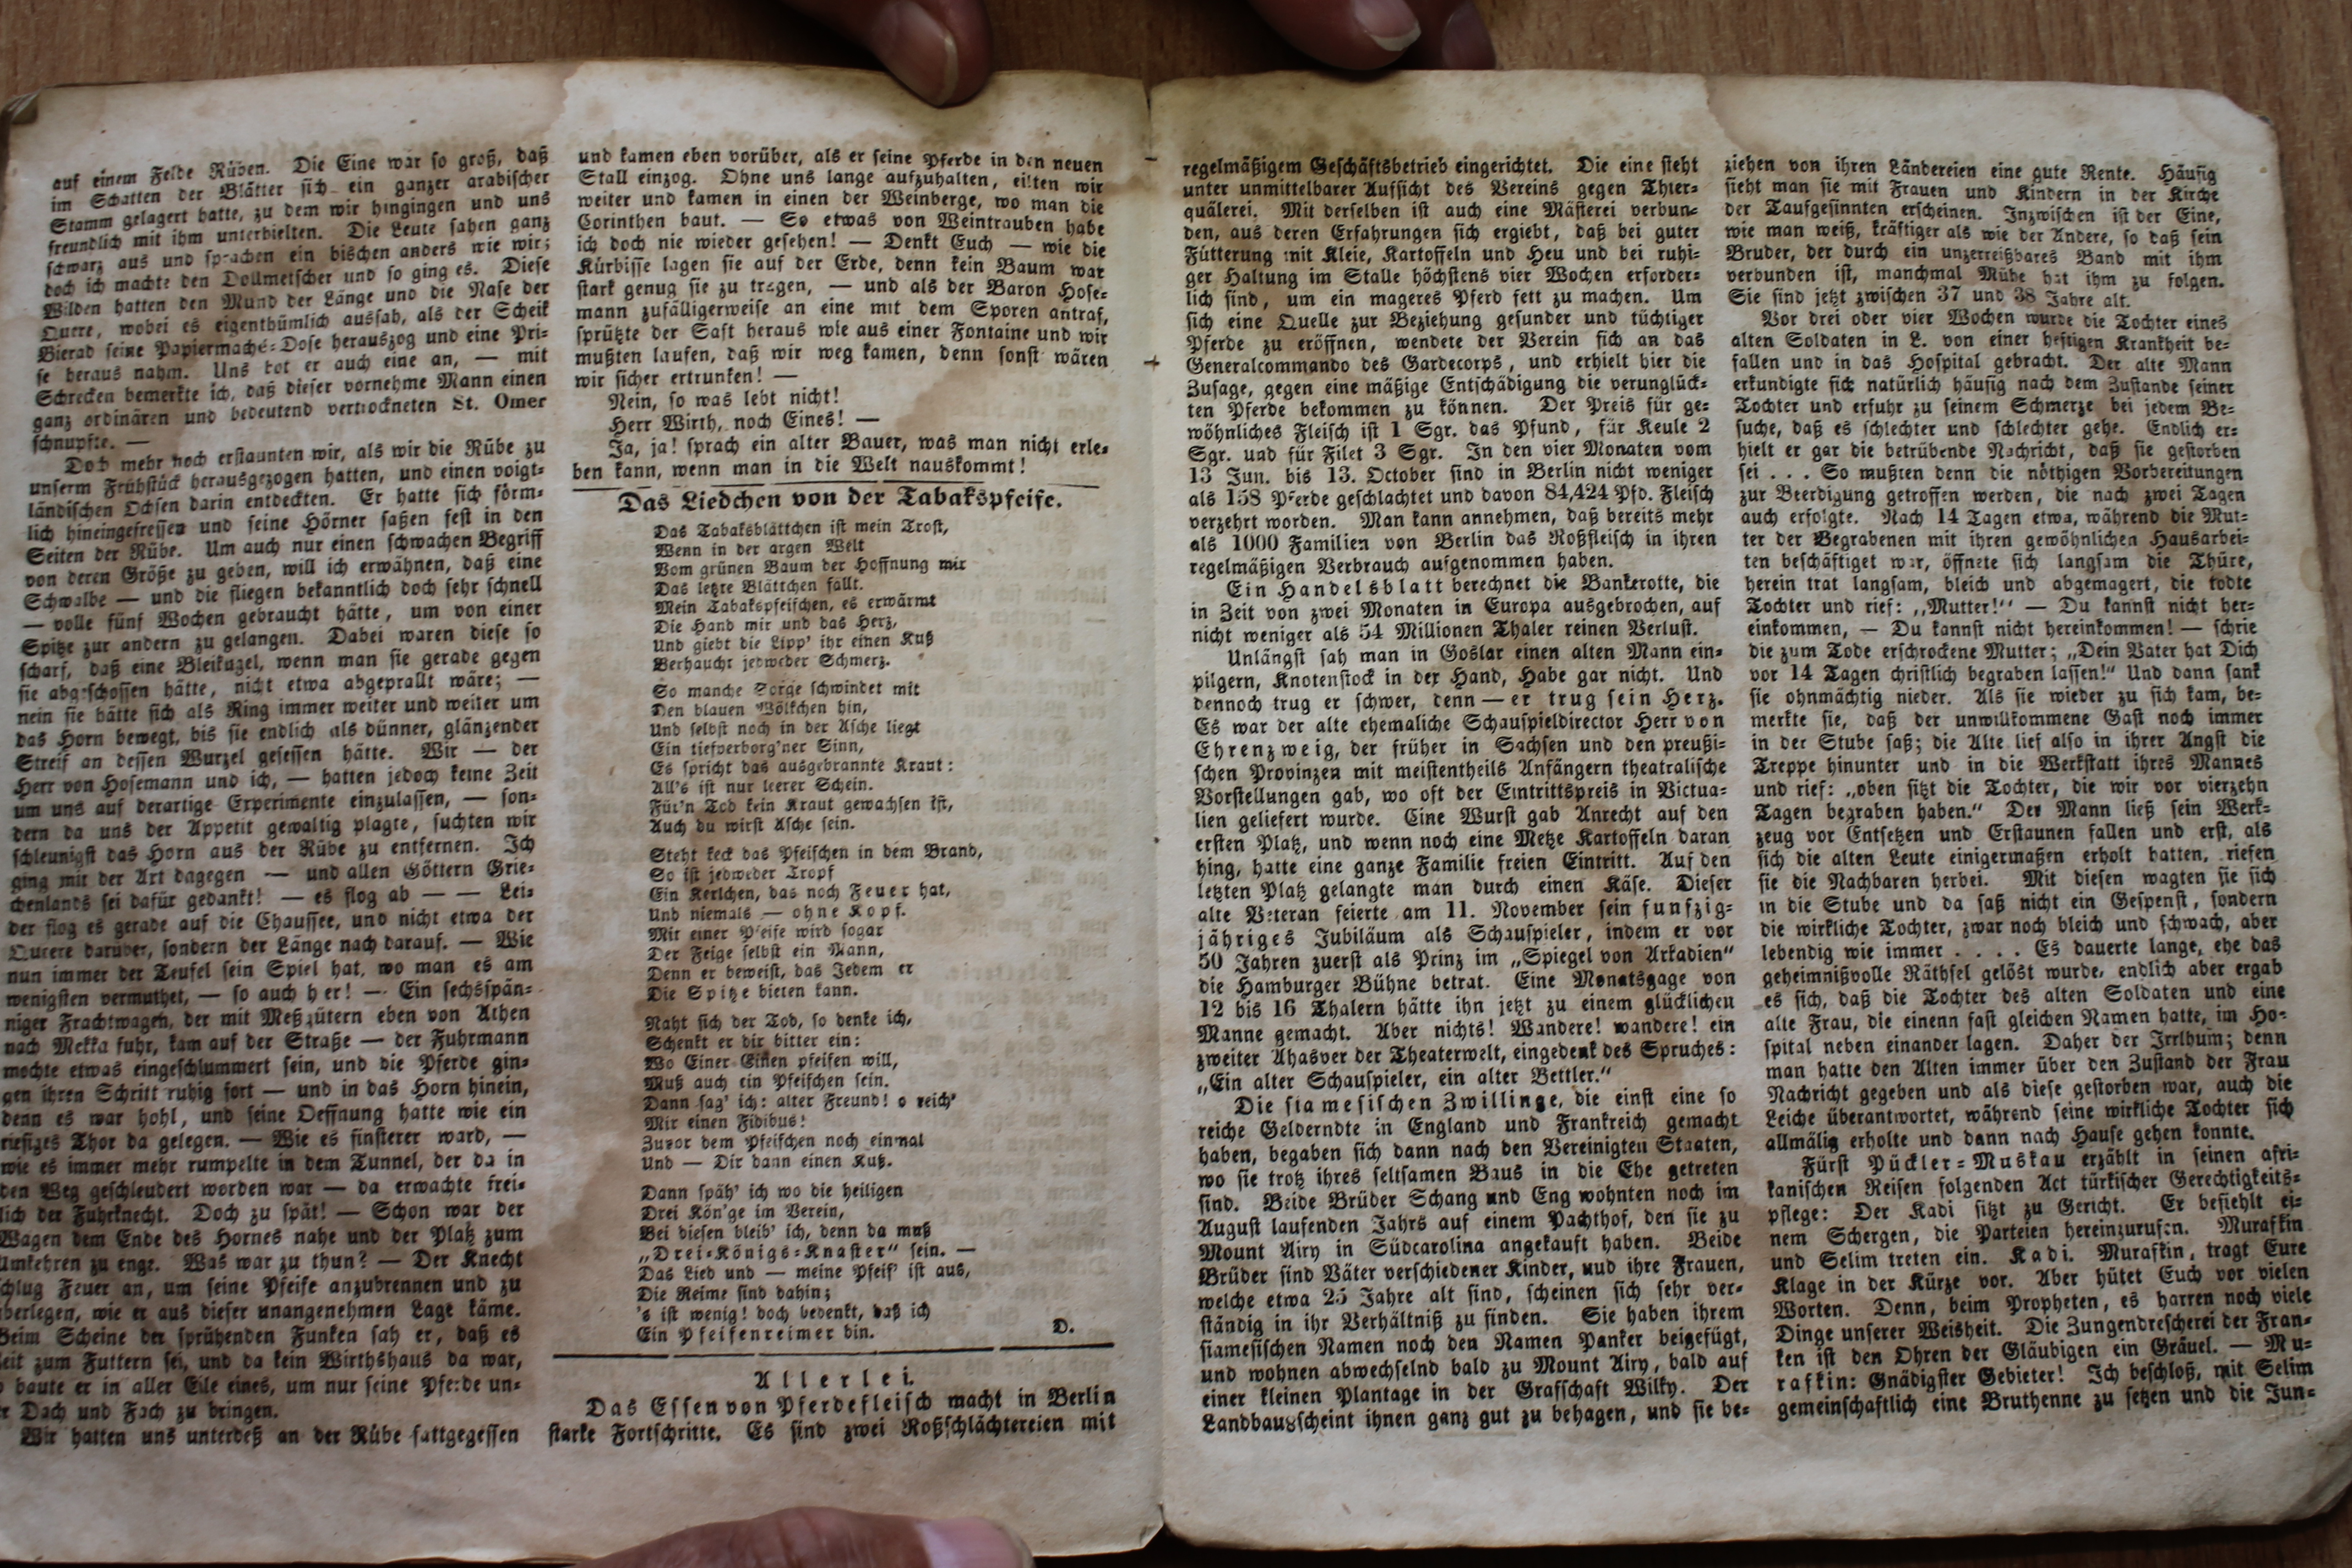 auf einem Felde Rüben. Die Eine war so groß, daß
im Schatten der Blätter sich ein ganzer arabischer
Stamm gelagert hatte, zu dem wir hingingen und uns
freundlich mit ihm unterhielten. Die Leute sahen ganz
schwarz aus und sprachen ein bischen anders wie wir;
doch ich machte den Dollmetscher und so ging es. Diese
Wilden hatten den Mund der Länge und die Nase der
Quere, wobei es eigenthümlich aussah, als der Scheik
Bierad seine Papiermaché-Dose herauszog und eine Pri-
se heraus nahm. Uns bot er auch eine an, — mit
Schrecken bemerkte ich, daß dieser vornehme Mann einen
ganz ordinären und bedeutend vertrockneten St. Omer
schnupfte. —
Doch mehr noch erstaunten wir, als wir die Rübe zu
unserm Frühstück herausgezogen hatten, und einen voigt-
ländischen Ochsen darin entdeckten. Er hatte sich förm-
lich hineingefressen und seine Hörner saßen fest in den
Seiten der Rübe. Um auch nur einen schwachen Begriff
von deren Größe zu geben, will ich erwähnen, daß eine
Schwalbe — und die fliegen bekanntlich doch sehr schnell
— volle fünf Wochen gebraucht hätte, um von einer
Spitze zur andern zu gelangen. Dabei waren diese so
scharf, daß eine Bleikugel, wenn man sie gerade gegen
sie abgeschossen hätte, nicht etwa abgeprallt wäre; —
nein sie hätte sich als Ring immer weiter und weiter um
das Horn bewegt, bis sie endlich als dünner, glänzender
Streif an dessen Wurzel gesessen hätte. Wir — der
Herr von Hosemann und ich, — hatten jedoch keine Zeit
um uns auf derartige Experimente einzulassen, — son-
dern da uns der Appetit gewaltig plagte, suchten wir
schleunigst das Horn aus der Rübe zu entfernen. Ich
ging mit der Art dagegen — und allen Göttern Grie-
chenlands sei dafür gedankt! — es flog ab — — Lei-
der flog es gerade auf die Chaussee, und nicht etwa der
Quere darüber, sondern der Länge nach darauf. — Wie
nun immer der Teufel sein Spiel hat, wo man es am
wenigsten vermuthet, — so auch hier! — Ein sechsspän-
niger Frachtwagen, der mit Meßgütern eben von Athen
nach Mekka fuhr, kam auf der Straße — der Fuhrmann
mochte etwas eingeschlummert sein, und die Pferde gin-
gen ihren Schritt ruhig fort — und in das Horn hinein,
denn es war hohl, und seine Oeffnung hatte wie ein
riesiges Thor da gelegen. — Wie es finsterer ward, —
wie es immer mehr rumpelte in dem Tunnel, der da in
den Weg geschleudert worden war — da erwachte frei-
lich der Fuhrknecht. Doch zu spät! — Schon war der
Wagen dem Ende des Hornes nahe und der Platz zum
Umkehren zu enge. Was war zu thun? — Der Knecht
schlug Feuer an, um seine Pfeife anzubrennen und zu
überlegen, wie er aus dieser unangenehmen Lage käme.
Beim Scheine der sprühenden Funken sah er, daß es
Zeit zum Futtern sei, und da kein Wirthshaus da war,
so baute er in aller Eile eines, um nur seine Pferde un-
ter Dach und Fach zu bringen.
Wir hatten uns unterdeß an der Rübe sattgegessen
und kamen eben vorüber, als er seine Pferde in den neuen
Stall einzog. Ohne uns lange aufzuhalten, eilten wir
weiter und kamen in einen der Weinberge, wo man die
Corinthen baut. — So etwas von Weintrauben habe
ich doch nie wieder gesehen! — Denkt Euch — wie die
Kürbisse lagen sie auf der Erde, denn kein Baum war
stark genug sie zu tragen, — und als der Baron Hose-
mann zufälligerweise an eine mit dem Sporen antraf,
sprützte der Saft heraus wie aus einer Fontaine und wir
mußten laufen, daß wir weg kamen, denn sonst wären
wir sicher ertrunken! —
Nein, so was lebt nicht!
Herr Wirth, noch Eines! —
Ja, ja! sprach ein alter Bauer, was man nicht erle-
ben kann, wenn man in die Welt nauskommt!
Das Liedchen von der Tabakspfeife.
Das Tabaksblättchen ist mein Trost,
Wenn in der argen Welt
Vom grünen Baum der Hoffnung mir
Das letzte Blättchen fällt.
Mein Tabakspfeifchen, es erwärmt
Die Hand mir und das Herz,
Und giebt die Lipp' ihr einen Kuß
Verhaucht jedweder Schmerz.
So manche Sorge schwindet mit
Den blauen Wölkchen hin,
Und selbst noch in der Asche liegt
Ein tiefverborg'ner Sinn,
Es spricht das ausgebrannte Kraut:
All's ist nur leerer Schein.
Für'n Tod kein Kraut gewachsen ist,
Auch du wirst Asche sein.
Steht keck das Pfeifchen in dem Brand,
So ist jedweder Tropf
Ein Kerlchen, das noch Feuer hat,
Und niemals — ohne Kopf.
Mit einer Pfeife wird sogar
Der Feige selbst ein Mann,
Denn er beweist, das Jedem er
Die Spitze bieten kann.
Naht sich der Tod, so denke ich,
Schenkt er dir bitter ein:
Wo Einer Einen pfeifen will,
Muß auch ein Pfeifchen sein.
Dann sag' ich: alter Freund! o reich'
Mir einen Fidibus!
Zuvor dem Pfeifchen noch einmal
Und — Dir dann einen Kuß.
Dann späh' ich wo die heiligen
Drei Kön'ge im Verein,
Bei diesen bleib' ich, denn da muß
„Drei-Königs-Knaster“ sein. —
Das Lied und — meine Pfeif' ist aus,
Die Reime sind dahin;
's ist wenig! doch bedenkt, daß ich
Ein Pfeifenreimer bin. D.
Allerlei.
Das Essen von Pferdefleisch macht in Berlin
starke Fortschritte. Es sind zwei Roßschlächtereien mit
regelmäßigem Geschäftsbetrieb eingerichtet. Die eine steht
unter unmittelbarer Aufsicht des Vereins gegen Thier-
quälerei. Mit derselben ist auch eine Mästerei verbun-
den, aus deren Erfahrungen sich ergiebt, daß bei guter
Fütterung mit Kleie, Kartoffeln und Heu und bei ruhi-
ger Haltung im Stalle höchstens vier Wochen erforder-
lich sind, um ein mageres Pferd fett zu machen. Um
sich eine Quelle zur Beziehung gesunder und tüchtiger
Pferde zu eröffnen, wendete der Verein sich an das
Generalcommando des Gardecorps, und erhielt hier die
Zusage, gegen eine mäßige Entschädigung die verunglück-
ten Pferde bekommen zu können. Der Preis für ge-
wöhnliches Fleisch ist 1 Sgr. das Pfund, für Keule 2
Sgr. und für Filet 3 Sgr. In den vier Monaten vom
13 Jun. bis 13. October sind in Berlin nicht weniger
als 158 Pferde geschlachtet und davon 84,424 Pfd. Fleisch
verzehrt worden. Man kann annehmen, daß bereits mehr
als 1000 Familien von Berlin das Roßfleisch in ihren
regelmäßigen Verbrauch aufgenommen haben.
Ein Handelsblatt berechnet die Bankerotte, die
in Zeit von zwei Monaten in Europa ausgebrochen, auf
nicht weniger als 54 Millionen Thaler reinen Verlust.
Unlängst sah man in Goslar einen alten Mann ein-
pilgern, Knotenstock in der Hand, Habe gar nicht. Und
dennoch trug er schwer, denn — er trug sein Herz.
Es war der alte ehemaliche Schauspieldirector Herr von
Ehrenzweig, der früher in Sachsen und den preußi-
schen Provinzen mit meistentheils Anfängern theatralische
Vorstellungen gab, wo oft der Eintrittspreis in Victua-
lien geliefert wurde. Eine Wurst gab Anrecht auf den
ersten Platz, und wenn noch eine Metze Kartoffeln daran
hing, hatte eine ganze Familie freien Eintritt. Auf den
letzten Platz gelangte man durch einen Käse. Dieser
alte Veteran feierte am 11. November sein funfzig-
jähriges Jubiläum als Schauspieler, indem er vor
50 Jahren zuerst als Prinz im „Spiegel von Arkadien“
die Hamburger Bühne betrat. Eine Monatsgage von
12 bis 16 Thalern hätte ihn jetzt zu einem glücklichen
Manne gemacht. Aber nichts! Wandere! wandere! ein
zweiter Ahasver der Theaterwelt, eingedenk des Spruches:
„Ein alter Schauspieler, ein alter Bettler.“
Die siamesischen Zwillinge, die einst eine so
reiche Gelderndte in England und Frankreich gemacht
haben, begaben sich dann nach den Vereinigten Staaten,
wo sie trotz ihres seltsamen Baus in die Ehe getreten
sind. Beide Brüder Schang und Eng wohnten noch im
August laufenden Jahrs auf einem Pachthof, den sie zu
Mount Airy in Südcarolina angekauft haben. Beide
Brüder sind Väter verschiedener Kinder, uud ihre Frauen,
welche etwa 25 Jahre alt sind, scheinen sich sehr ver-
ständig in ihr Verhältniß zu finden. Sie haben ihrem
siamesischen Namen noch den Namen Panker beigefügt,
und wohnen abwechselnd bald zu Mount Airy, bald auf
einer kleinen Plantage in der Grafschaft Wilky. Der
Landbau scheint ihnen ganz gut zu behagen, und sie be-
ziehen von ihren Ländereien eine gute Rente. Häufig
sieht man sie mit Frauen und Kindern in der Kirche
der Taufgesinnten erscheinen. Inzwischen ist der Eine,
wie man weiß, kräftiger als wie der Andere, so daß sein
Bruder, der durch ein unzerreißbares Band mit ihm
verbunden ist, manchmal Mühe hat ihm zu folgen.
Sie sind jetzt zwischen 37 und 38 Jahre alt.
Vor drei oder vier Wochen wurde die Tochter eines
alten Soldaten in L. von einer heftigen Krankheit be-
fallen und in das Hospital gebracht. Der alte Mann
erkundigte sich natürlich häufig nach dem Zustande seiner
Tochter und erfuhr zu seinem Schmerze bei jedem Be-
suche, daß es schlechter und schlechter gehe. Endlich er-
hielt er gar die betrübende Nachricht, daß sie gestorben
sei . . . So mußten denn die nöthigen Vorbereitungen
zur Beerdigung getroffen werden, die nach zwei Tagen
auch erfolgte. Nach 14 Tagen etwa, während die Mut-
ter der Begrabenen mit ihren gewöhnlichen Hausarbei-
ten beschäftiget war, öffnete sich langsam die Thüre,
herein trat langsam, bleich und abgemagert, die todte
Tochter und rief: „Mutter!“ — Du kannst nicht her-
einkommen, — Du kannst nicht hereinkommen! — schrie
die zum Tode erschrockene Mutter; „Dein Vater hat Dich
vor 14 Tagen christlich begraben lassen!“ Und dann sank
sie ohnmächtig nieder. Als sie wieder zu sich kam, be-
merkte sie, daß der unwillkommene Gast noch immer
in der Stube saß; die Alte lief also in ihrer Angst die
Treppe hinunter und in die Werkstatt ihres Mannes
und rief: „oben sitzt die Tochter, die wir vor vierzehn
Tagen begraben haben.“ Der Mann ließ sein Werk-
zeug vor Entsetzen und Erstaunen fallen und erst, als
sich die alten Leute einigermaßen erholt hatten, riefen
sie die Nachbaren herbei. Mit diesen wagten sie sich
in die Stube und da saß nicht ein Gespenst, sondern
die wirkliche Tochter, zwar noch bleich und schwach, aber
lebendig wie immer . . . . Es dauerte lange, ehe das
geheimnißvolle Räthsel gelöst wurde, endlich aber ergab
es sich, daß die Tochter des alten Soldaten und eine
alte Frau, die einenn fast gleichen Namen hatte, im Ho-
spital neben einander lagen. Daher der Irrthum; denn
man hatte den Alten immer über den Zustand der Frau
Nachricht gegeben und als diese gestorben war, auch die
Leiche überantwortet, während seine wirkliche Tochter sich
allmälig erholte und dann nach Hause gehen konnte.
Fürst Pückler-Muskau erzählt in seinen afri-
kanischen Reisen folgenden Act türkischer Gerechtigkeits-
pflege: Der Kadi sitzt zu Gericht. Er befiehlt ei-
nem Schergen, die Parteien hereinzurufen. Murafkin
und Selim treten ein. Kadi. Murafkin, tragt Eure
Klage in der Kürze vor. Aber hütet Euch vor vielen
Worten. Denn, beim Propheten, es harren noch viele
Dinge unserer Weisheit. Die Zungendrescherei der Fran-
ken ist den Ohren der Gläubigen ein Gräuel. — Mu-
rafkin: Gnädigster Gebieter! Ich beschloß, mit Selim
gemeinschaftlich eine Bruthenne zu setzen und die Jun-